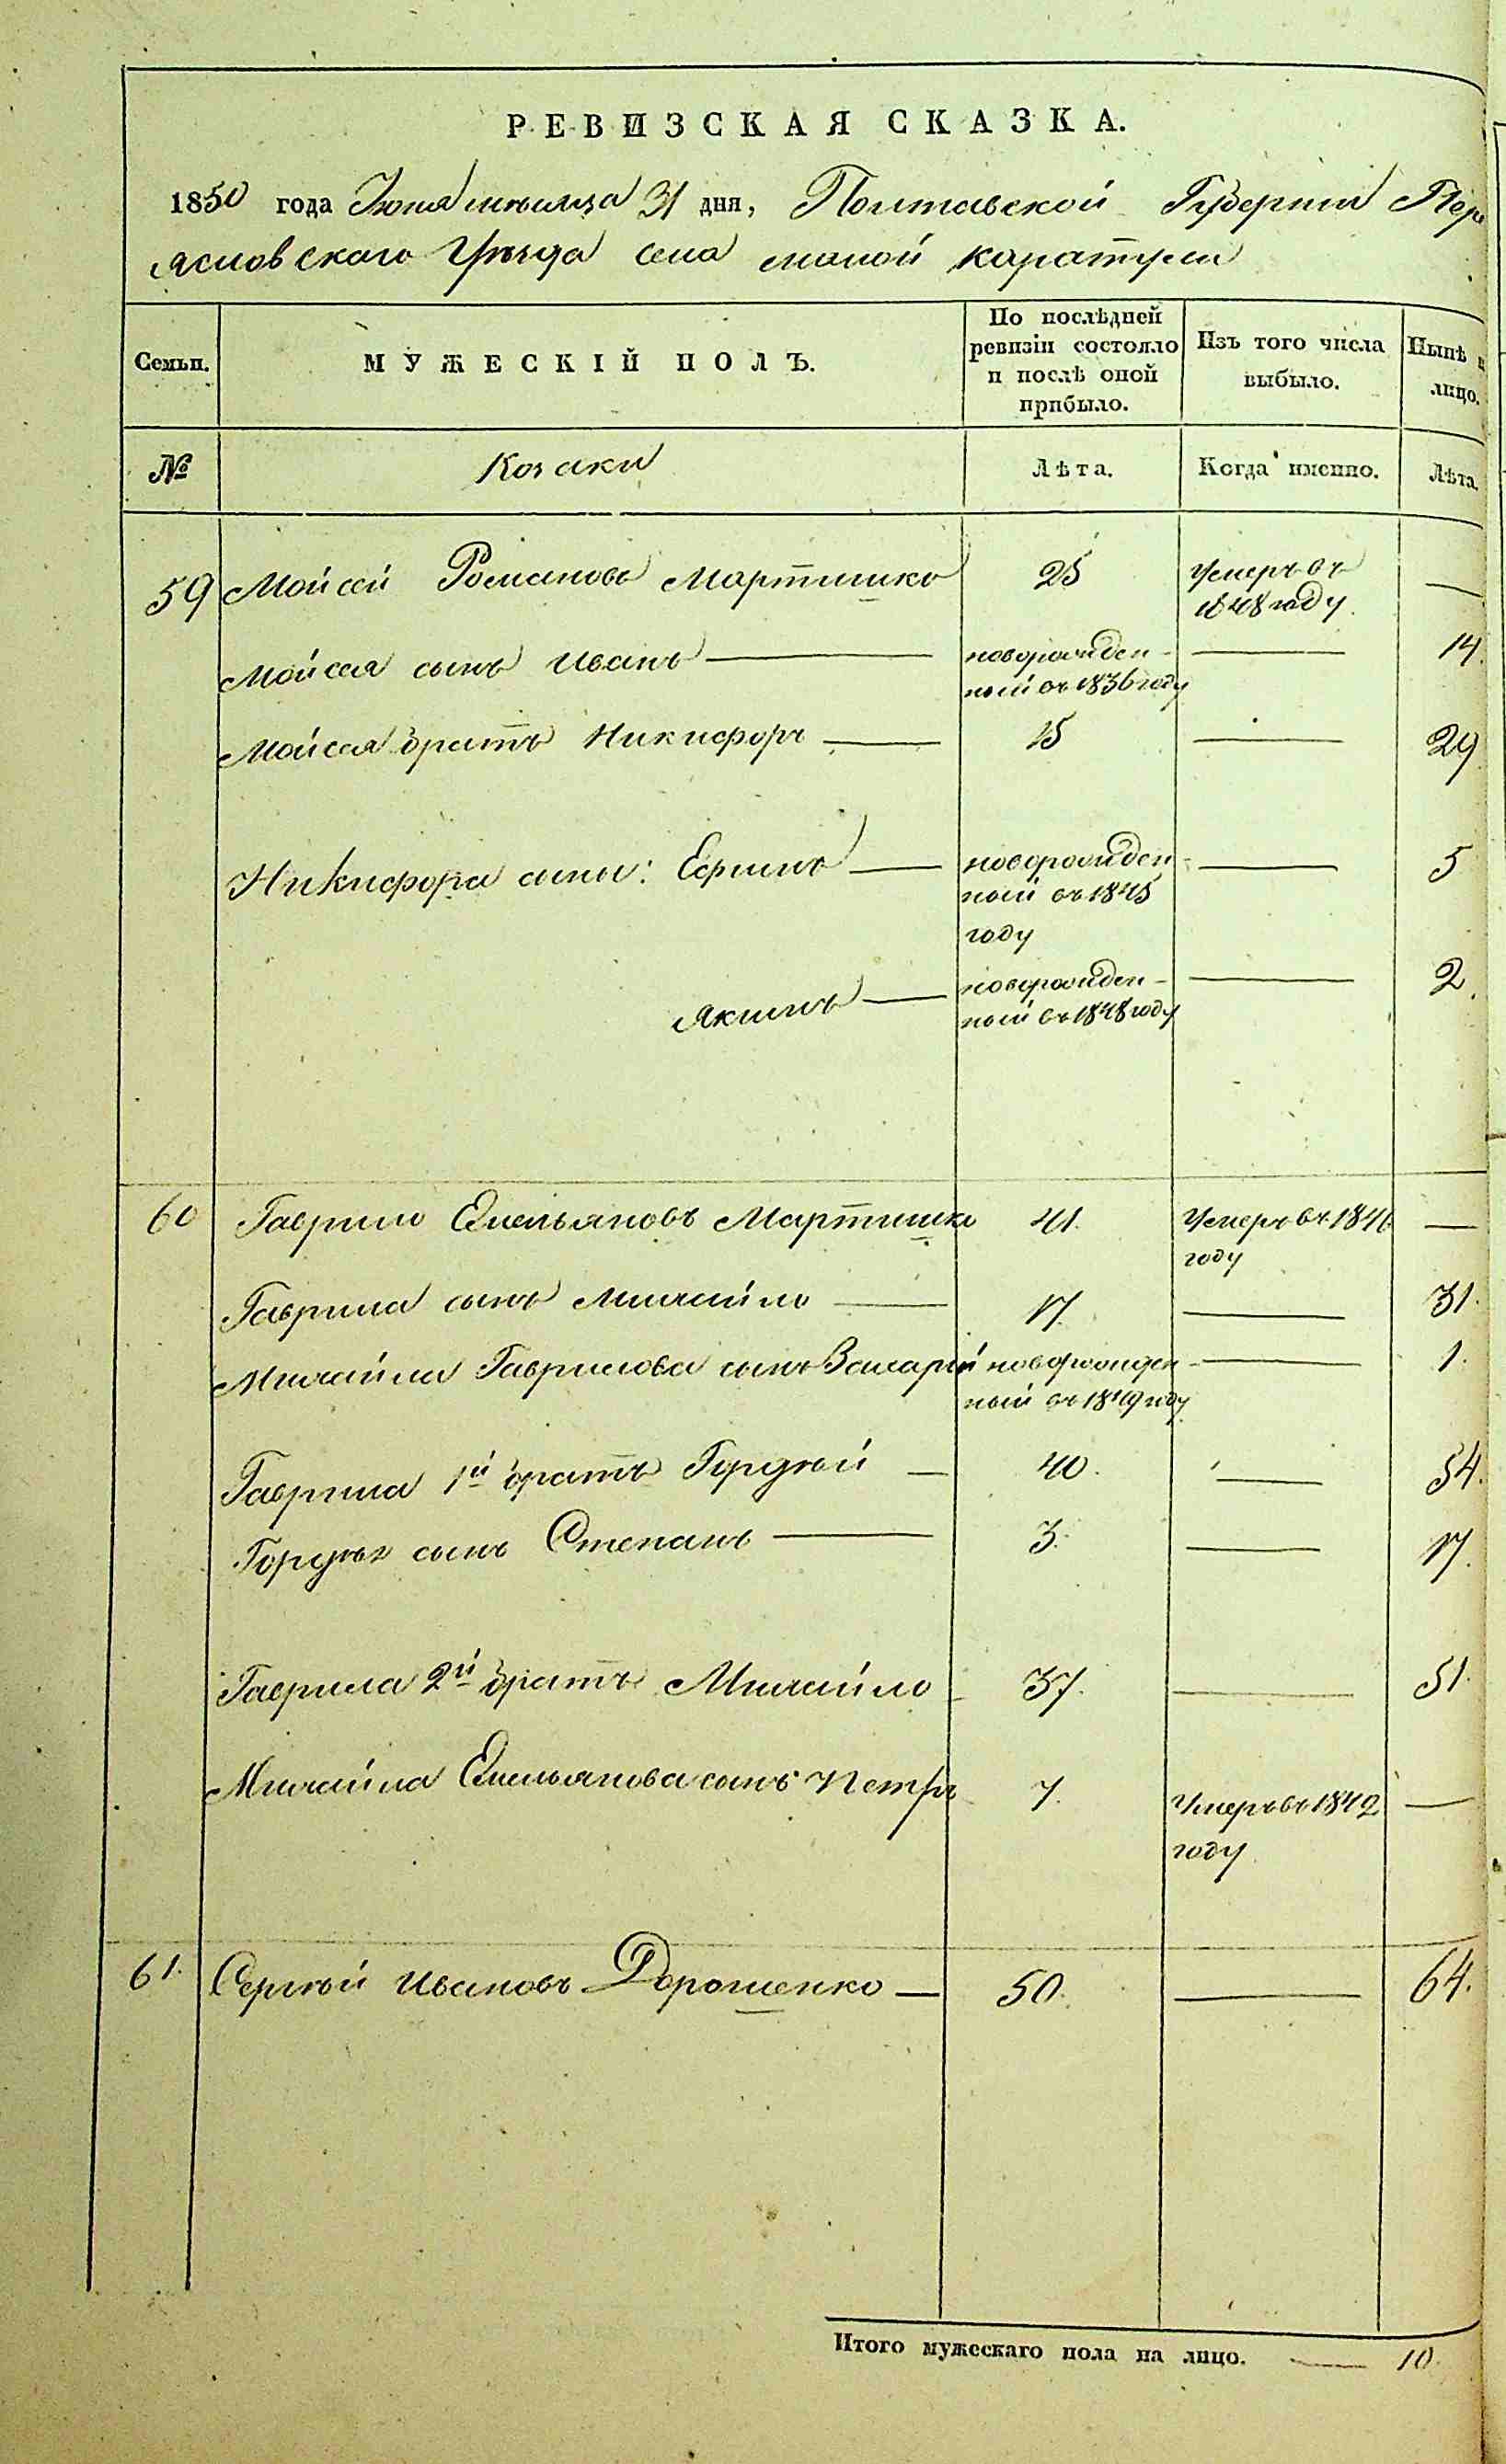 РЕВИЗСКАЯ СКАЗКА.
1850 года Июня мѣсяца 31 дня, Полтавской Губерніи Пер
яславскаго Уѣзда села малой каратули
Семьи. МУЖЕСКІЙ ПОЛЪ. По послѣдней ревизіи состояло и послѣ оной прибыло. Изъ того числа выбыло. Нынѣ н лицо.
№ Козаки Лѣта. Когда именно. Лѣта.
59 Мойсей Романовъ Мартишко 25 Умеръ въ 1848 году —
Мойсея сынъ Иванъ — новорожден-ный въ 1836 году — 14.
Мойсея братъ Никифоръ — 15 — 29
Никифора сыны: Ефимъ — новорожден-ный въ 1845 году — 5
Якимъ — новорожден-ный въ 1848 году — 2.
60 Гаврило Емельяновъ Мартишко 41. Умеръ въ 1846 году —
Гаврила сынъ Михайло — 17. — 31.
Михайла Гаврилова сынъ Захарій новорожден-ный въ 1849 году — 1.
Гаврила 1й братъ Гордѣй — 40. — 54.
Гордѣя сынъ Степанъ — 3. — 17.
Гаврила 2й братъ Михайло — 37. — 51.
Михайла Емельянова сынъ Петръ 7. Умеръ въ 1842 году —
61. Сергѣй Ивановъ Дорошенко — 50. — 64.
Итого мужескаго пола на лицо. — 10.